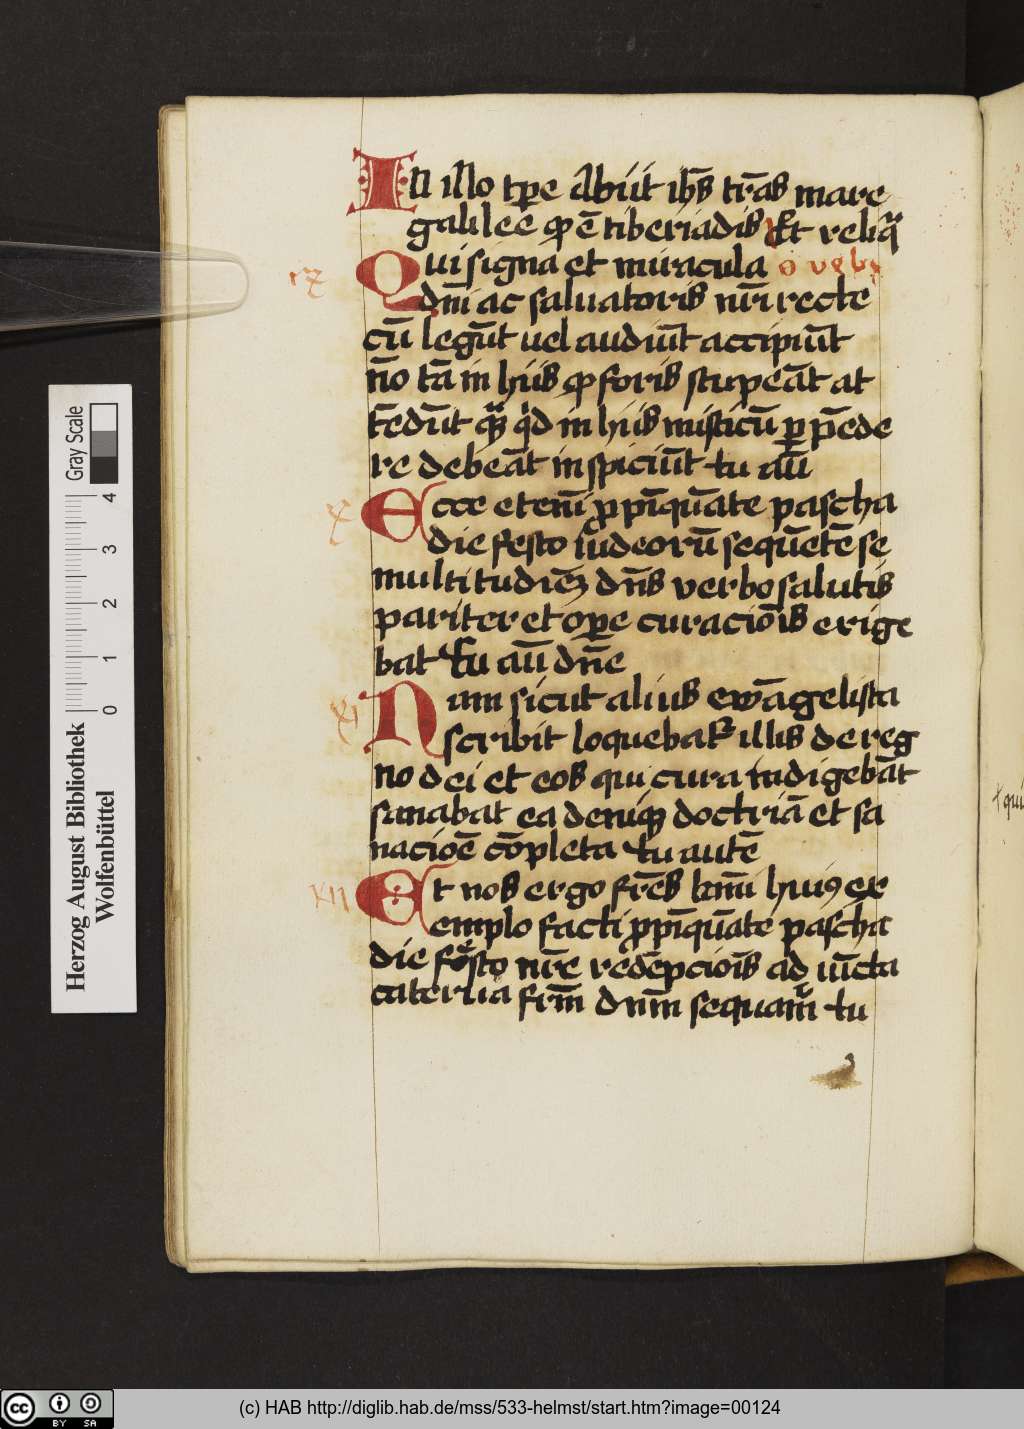 In illo tp̄e abiit ih̄s tr̄ns mare
galilee q̄ ē tiberiadis Et reliq̄
Qui signa et miracula o v͛ b͛
ix
dn̄i ac saluatoris nr̄i recte
cū legūt uel audiūt accipiūt
nō tā in hijs q̄ foris stupeāt at
tēdūt quā qͥd in hijs misticū ꝑpēde
re debeāt inspiciūt tu aū
x
Ecce etenī ꝓpīquāte pascha
die festo iudeorū sequētē se
multitudinē dn̄s verbo salutis
pariter et oꝑe curacōis erige
bat tu aū dn̄e
xi
Nam sicut alius ewāgelista
scribit loquebat͛ illis de reg
no dei et eos qui cura indigebāt
sanabat ea deniqꝫ doctrīa et sa
nacioē cōpleta tu autē
xii
Et nos ergo fr̄es kr̄mi huiꝯ ex
emplo facti ꝓpīquāte pascha
die festo nr̄e redēpciōis ad iūcta
caterua fr̄m dn̄m sequam͛ tu
Gray Scale
0 1 2 3 4
Herzog August Bibliothek
Wolfenbüttel
cc BY SA
(c) HAB http://diglib.hab.de/mss/533-helmst/start.htm?image=00124